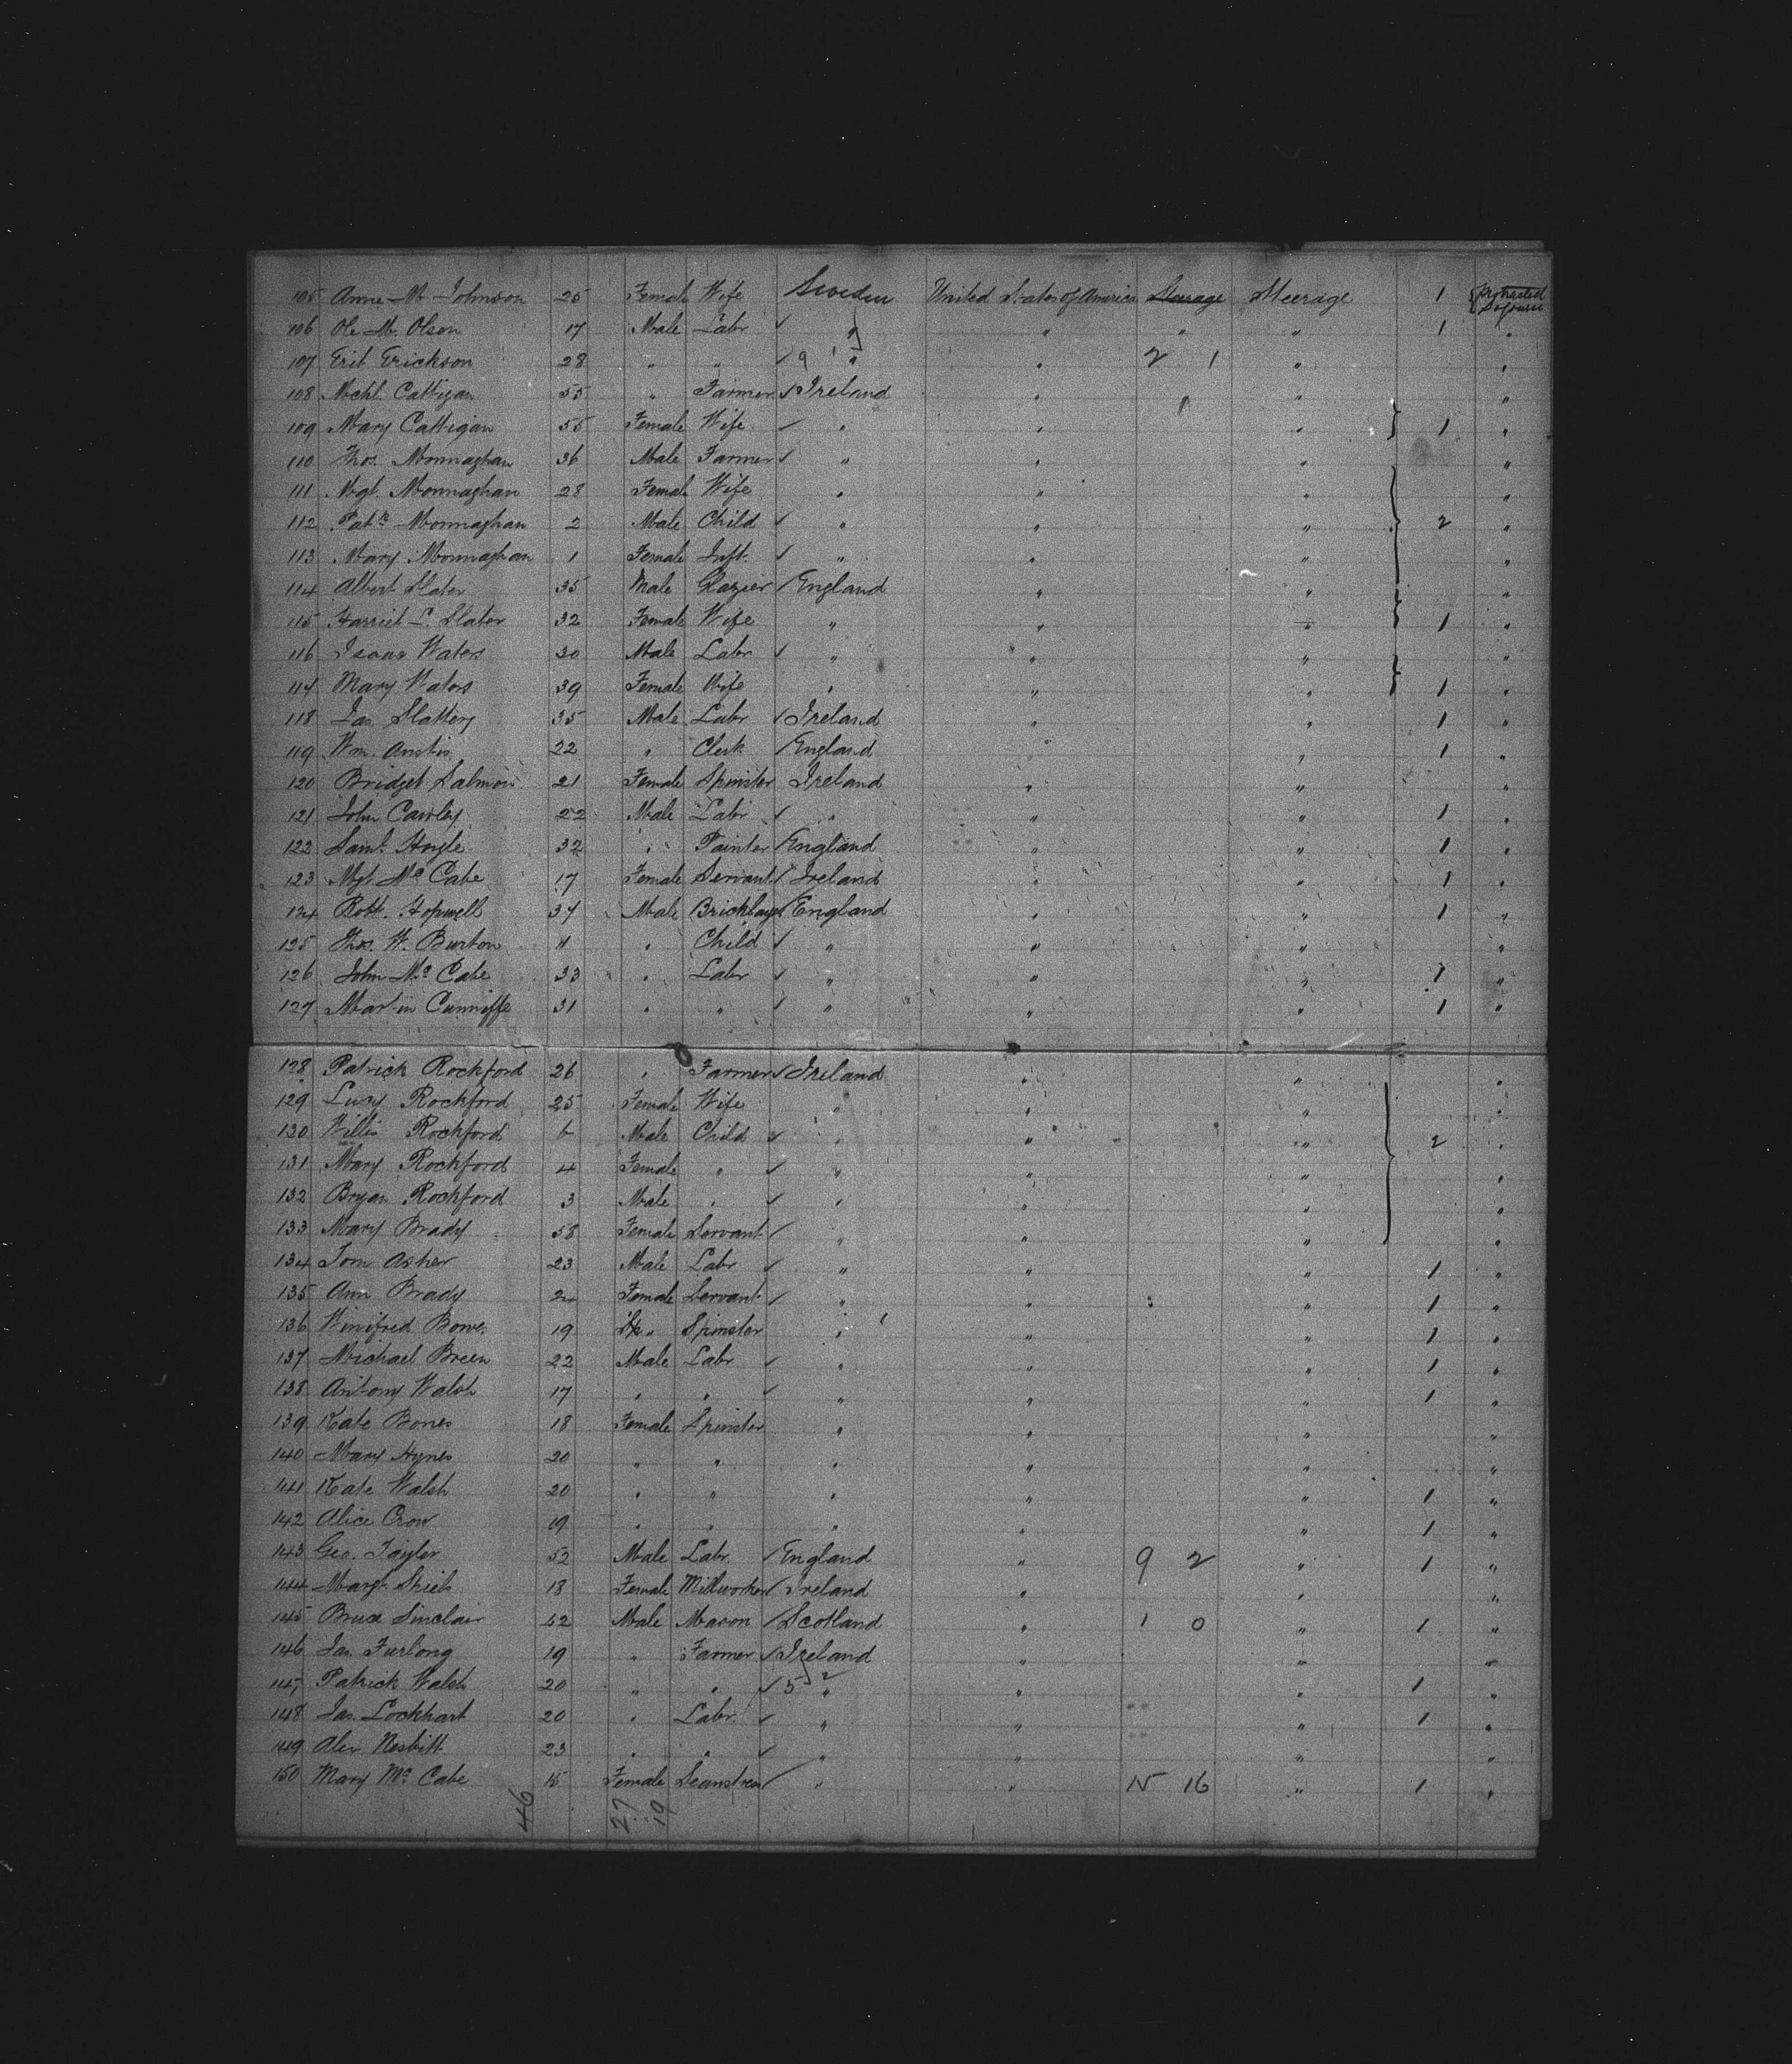 105 Anne M Johnson 25 Female Wife Sweden United States of America Steerage Steerage 1 Protracted Sojourn
106 Ole M. Olson 17 Male Labr ✓ " " " " 1 "
107 Erik Erickson 28 " " ✓ 9 1 " " 2 1 " "
108 Michl. Cattigan 55 " Farmer ✓ Ireland " " "
109 Mary Cattigan 55 Female Wife ✓ " " " 1 "
110 Thos. Monnaghan 36 Male Farmer ✓ " " " "
111 Mgt. Monnaghan 28 Female Wife " " " "
112 Patk Monnaghan 2 Male Child ✓ " " " 2 "
113 Mary Monnaghan 1 Female Inft. ✓ " " " "
114 Albert Slater 35 Male Glazier / England " " "
115 Harriet L. Slater 32 Female Wife " " " 1 "
116 Isaac Waters 30 Male Labr ✓ " " " "
117 Mary Waters 39 Female Wife " " " 1 "
118 Jas. Slattery 35 Male Labr / Ireland " " 1 "
119 Wm. Anstis 22 " Clerk / England " " 1 "
120 Bridget Salmon 21 Female Spinster Ireland " " "
121 John Cawley 22 Male Labr ✓ " " " 1 "
122 Saml. Hoyle 32 " Painter / England " " 1 "
123 Mgt. Mc Cabe 17 Female Servant / Ireland " " 1 "
124 Robt. Hopwell 37 Male Bricklayer / England " " 1 "
125 Thos. W. Burton 11 " Child ✓ " " " "
126 John Mc Cabe 33 " Labr ✓ " " " 1 "
127 Martin Cunniffe 31 " " ✓ " " " 1 "
128 Patrick Rockford 26 " Farmer ✓ Ireland " " "
129 Lucy Rockford 25 Female Wife " " " "
130 Willie Rockford 6 Male Child ✓ " " " 2 "
131 Mary Rockford 4 Female " ✓ " " " "
132 Bryan Rockford 3 Male " ✓ " " " "
133 Mary Brady 58 Female Servant / " " " "
134 Tom Asher 23 Male Labr ✓ " " " 1 "
135 Ann Brady Female Servant / " " " 1 "
136 Winifred 19 " Spinster " " " 1 "
137 Michael Breen 22 Male Labr ✓ " " " 1 "
138 Antony Walsh 17 " " ✓ " " " 1 "
139 Kate Bones 18 Female Spinster " " " "
140 Mary Hynes 20 " " " " " "
141 Kate Walsh 20 " " " " " 1 "
142 Alice Crow 19 " " " " " 1 "
143 Geo. Taylor 52 Male Labr. / England " 9 2 " 1 "
144 Margt. Shiels 18 Female Millworker / Ireland " " "
145 Bruce Sinclair 42 Male Mason / Scotland " 1 0 " 1 "
146 Jas. Furlong 19 " Farmer ✓ Ireland " " "
147 Patrick Walsh 20 " " ✓ 5 2 " " " 1 "
148 Jas. Lockhart 20 " Labr. ✓ " " " 1 "
149 Alex Nesbitt 23 " " ✓ " " " "
150 Mary Mc Cabe 15 Female Seamstress / " " 15 16 " 1 "
46 27 19